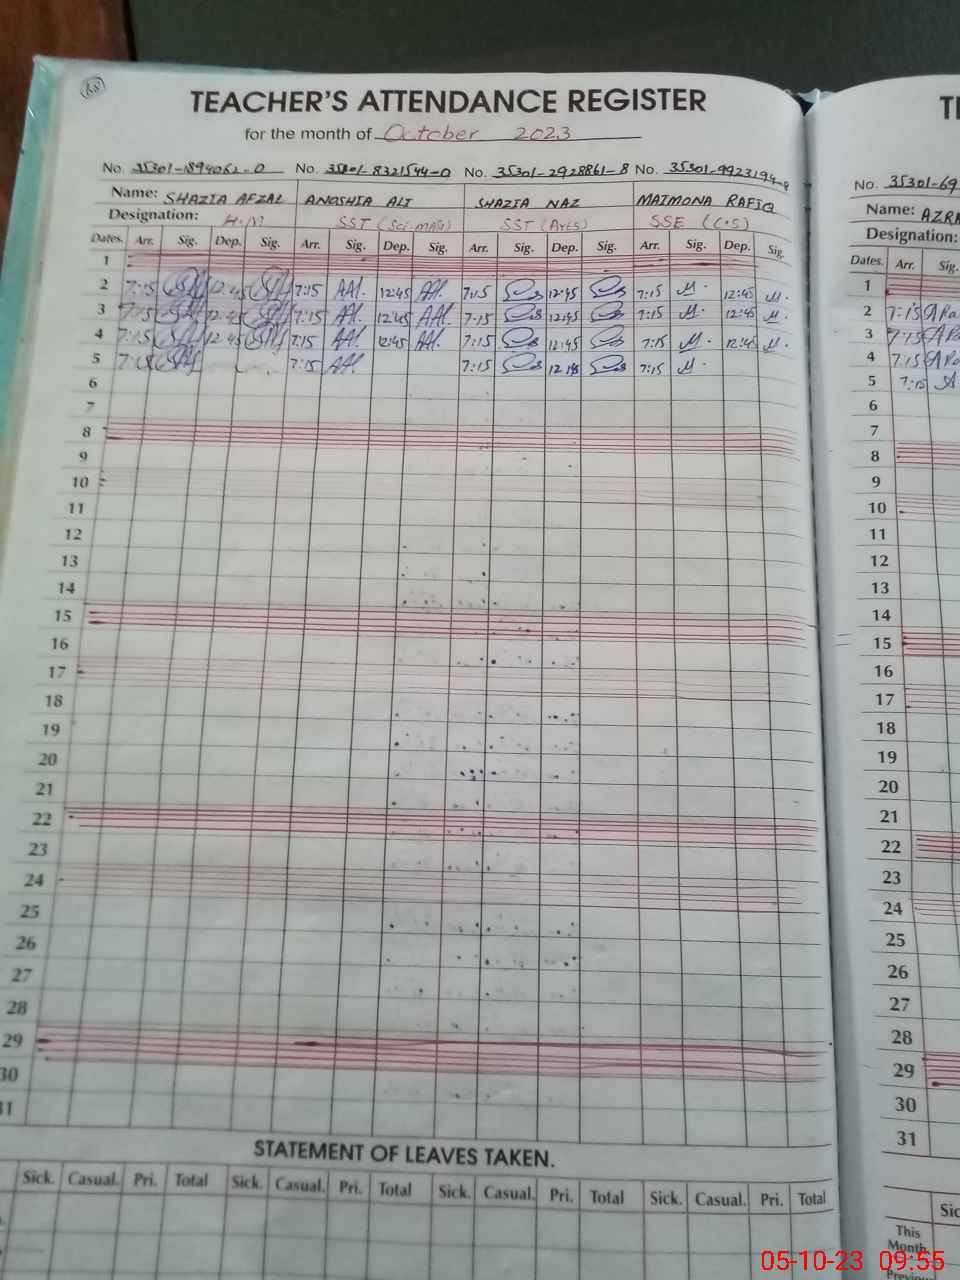 TEACHER'S ATTENDANCE REGISTER
for the month of October 2023
No. 35301-1894062-0 No. 35201-8321544-0 No. 35301-2928861-8 No. 35301-9923194-8
Name: SHAZIA AFZAL ANOSHIA ALI SHAZIA NAZ MAIMONA RAFIQ
Designation: H.M SST (Sci-Math) SST (Arts) SSE (C.S)
Dates. Arr. Sig. Dep. Sig. Arr. Sig. Dep. Sig. Arr. Sig. Dep. Sig. Arr. Sig. Dep. Sig.
1
2 7:15 12:45 7:15 AAl. 12:45 AAl. 7:15 12:45 7:15 M. 12:45 M.
3 7:15 12:45 7:15 AAl. 12:45 AAl. 7:15 12:45 7:15 M. 12:45 M.
4 7:15 12:45 7:15 AAl. 12:45 AAl. 7:15 12:45 7:15 M. 12:45 M.
5 7:15 7:15 AAl 7:15 12:45 7:15 M.
6
7
8
9
10
11
12
13
14
15
16
17
18
19
20
21
22
23
24
25
26
27
28
29
30
31
STATEMENT OF LEAVES TAKEN.
Sick. Casual. Pri. Total Sick. Casual. Pri. Total Sick. Casual. Pri. Total Sick. Casual. Pri. Total
No. 35301-69
Name: AZRA
Designation:
Dates. Arr. Sig.
1
2 7:15
3 7:15
4 7:15
5 7:15
6
7
8
9
10
11
12
13
14
15
16
17
18
19
20
21
22
23
24
25
26
27
28
29
30
31
This
Month
05-10-23 09:55